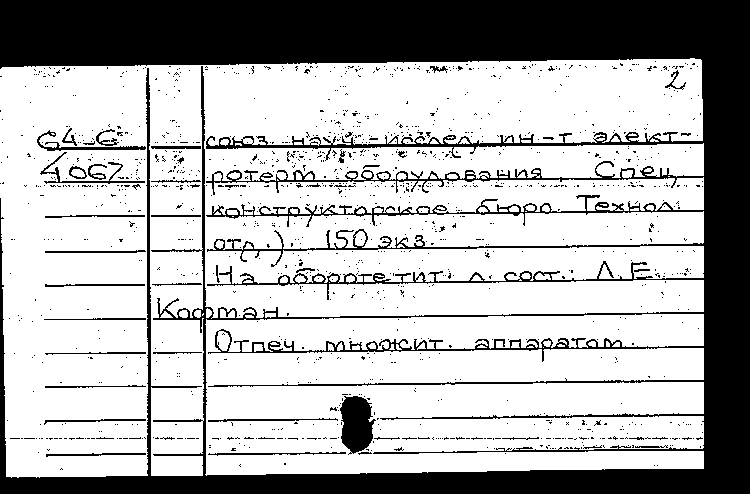 2
64-6 союз. науч.-исслед. ин-т элект-
4067 ротерм. оборудования. Спец.
конструкторское бюро. Технол.
отд.). 150 экз.
На обороте тит. л. сост.: Л.Е.
Кофман.
Отпеч. множит. аппаратом.